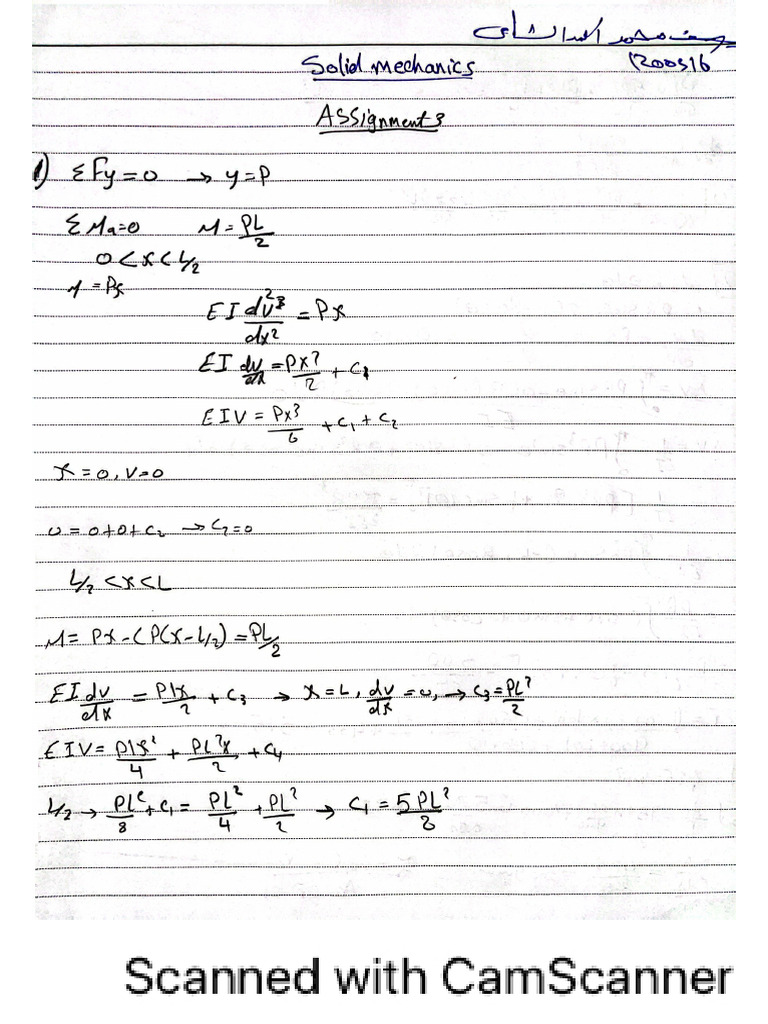 محمد
1200516
Solid mechanics
Assignment 3
1) ΣFy=0 → y=P
ΣMa=0 M=PL/2
0<x<L/2
M=Px
EI d²v/dx² = Px
EI dv/dx = Px²/2 + C1
EIV = Px³/6 + C1 + C2
x=0, V=0
0=0+0+C2 → C2=0
L/2<x<L
M= Px-(P(x-L/2)=PL/2
EI dv/dx = PLx/2 + C3 → x=L, dv/dx=0, → C3=PL²/2
EIV= PLx²/4 + PL²x/2 + C4
L/2 → PL²/8 + C1 = PL²/4 + PL²/2 → C1 = 5PL²/8
Scanned with CamScanner